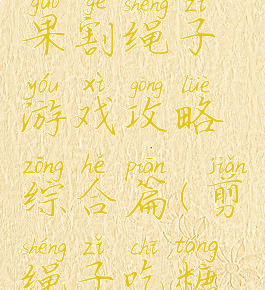 guǒ gē shéng zǐ
果割绳子
yóu xì gōng lüè
游戏攻略
zōng hé piān jiǎn
综合篇(剪
shéng zǐ chī táng
绳子吃糖